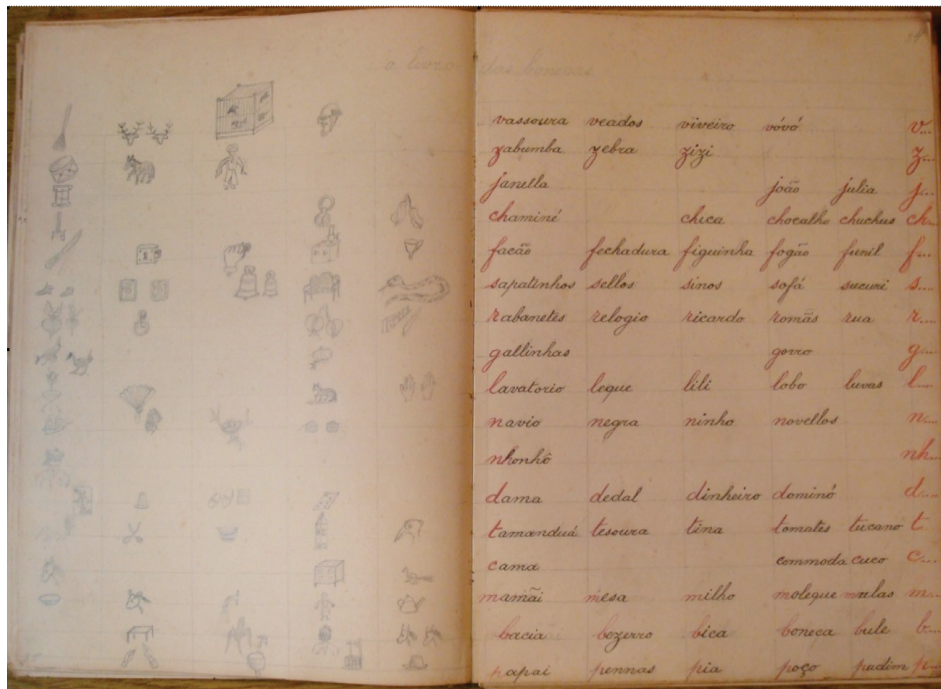 o livro das bonecas
vassoura veados viveiro vóvó v...
zabumba zebra zizi z...
janella joão julia j...
chaminé chica chocalho chuchus ch...
facão fechadura figuinha fogão funil f...
sapatinhos sellos sinos sofá sucuri s....
rabanetes relogio ricardo romãs rua r....
gallinhas gorro g....
lavatorio leque lili lobo luvas l....
navio negra ninho novellos n....
nhonhô nh...
dama dedal dinheiro dominó d....
tamanduá tesoura tina tomates tucano t
cama commoda cuco c....
mamãi mesa milho moleque mulas m...
bacia bezerro bica boneca bule b...
papai pennas pia poço pudim p...